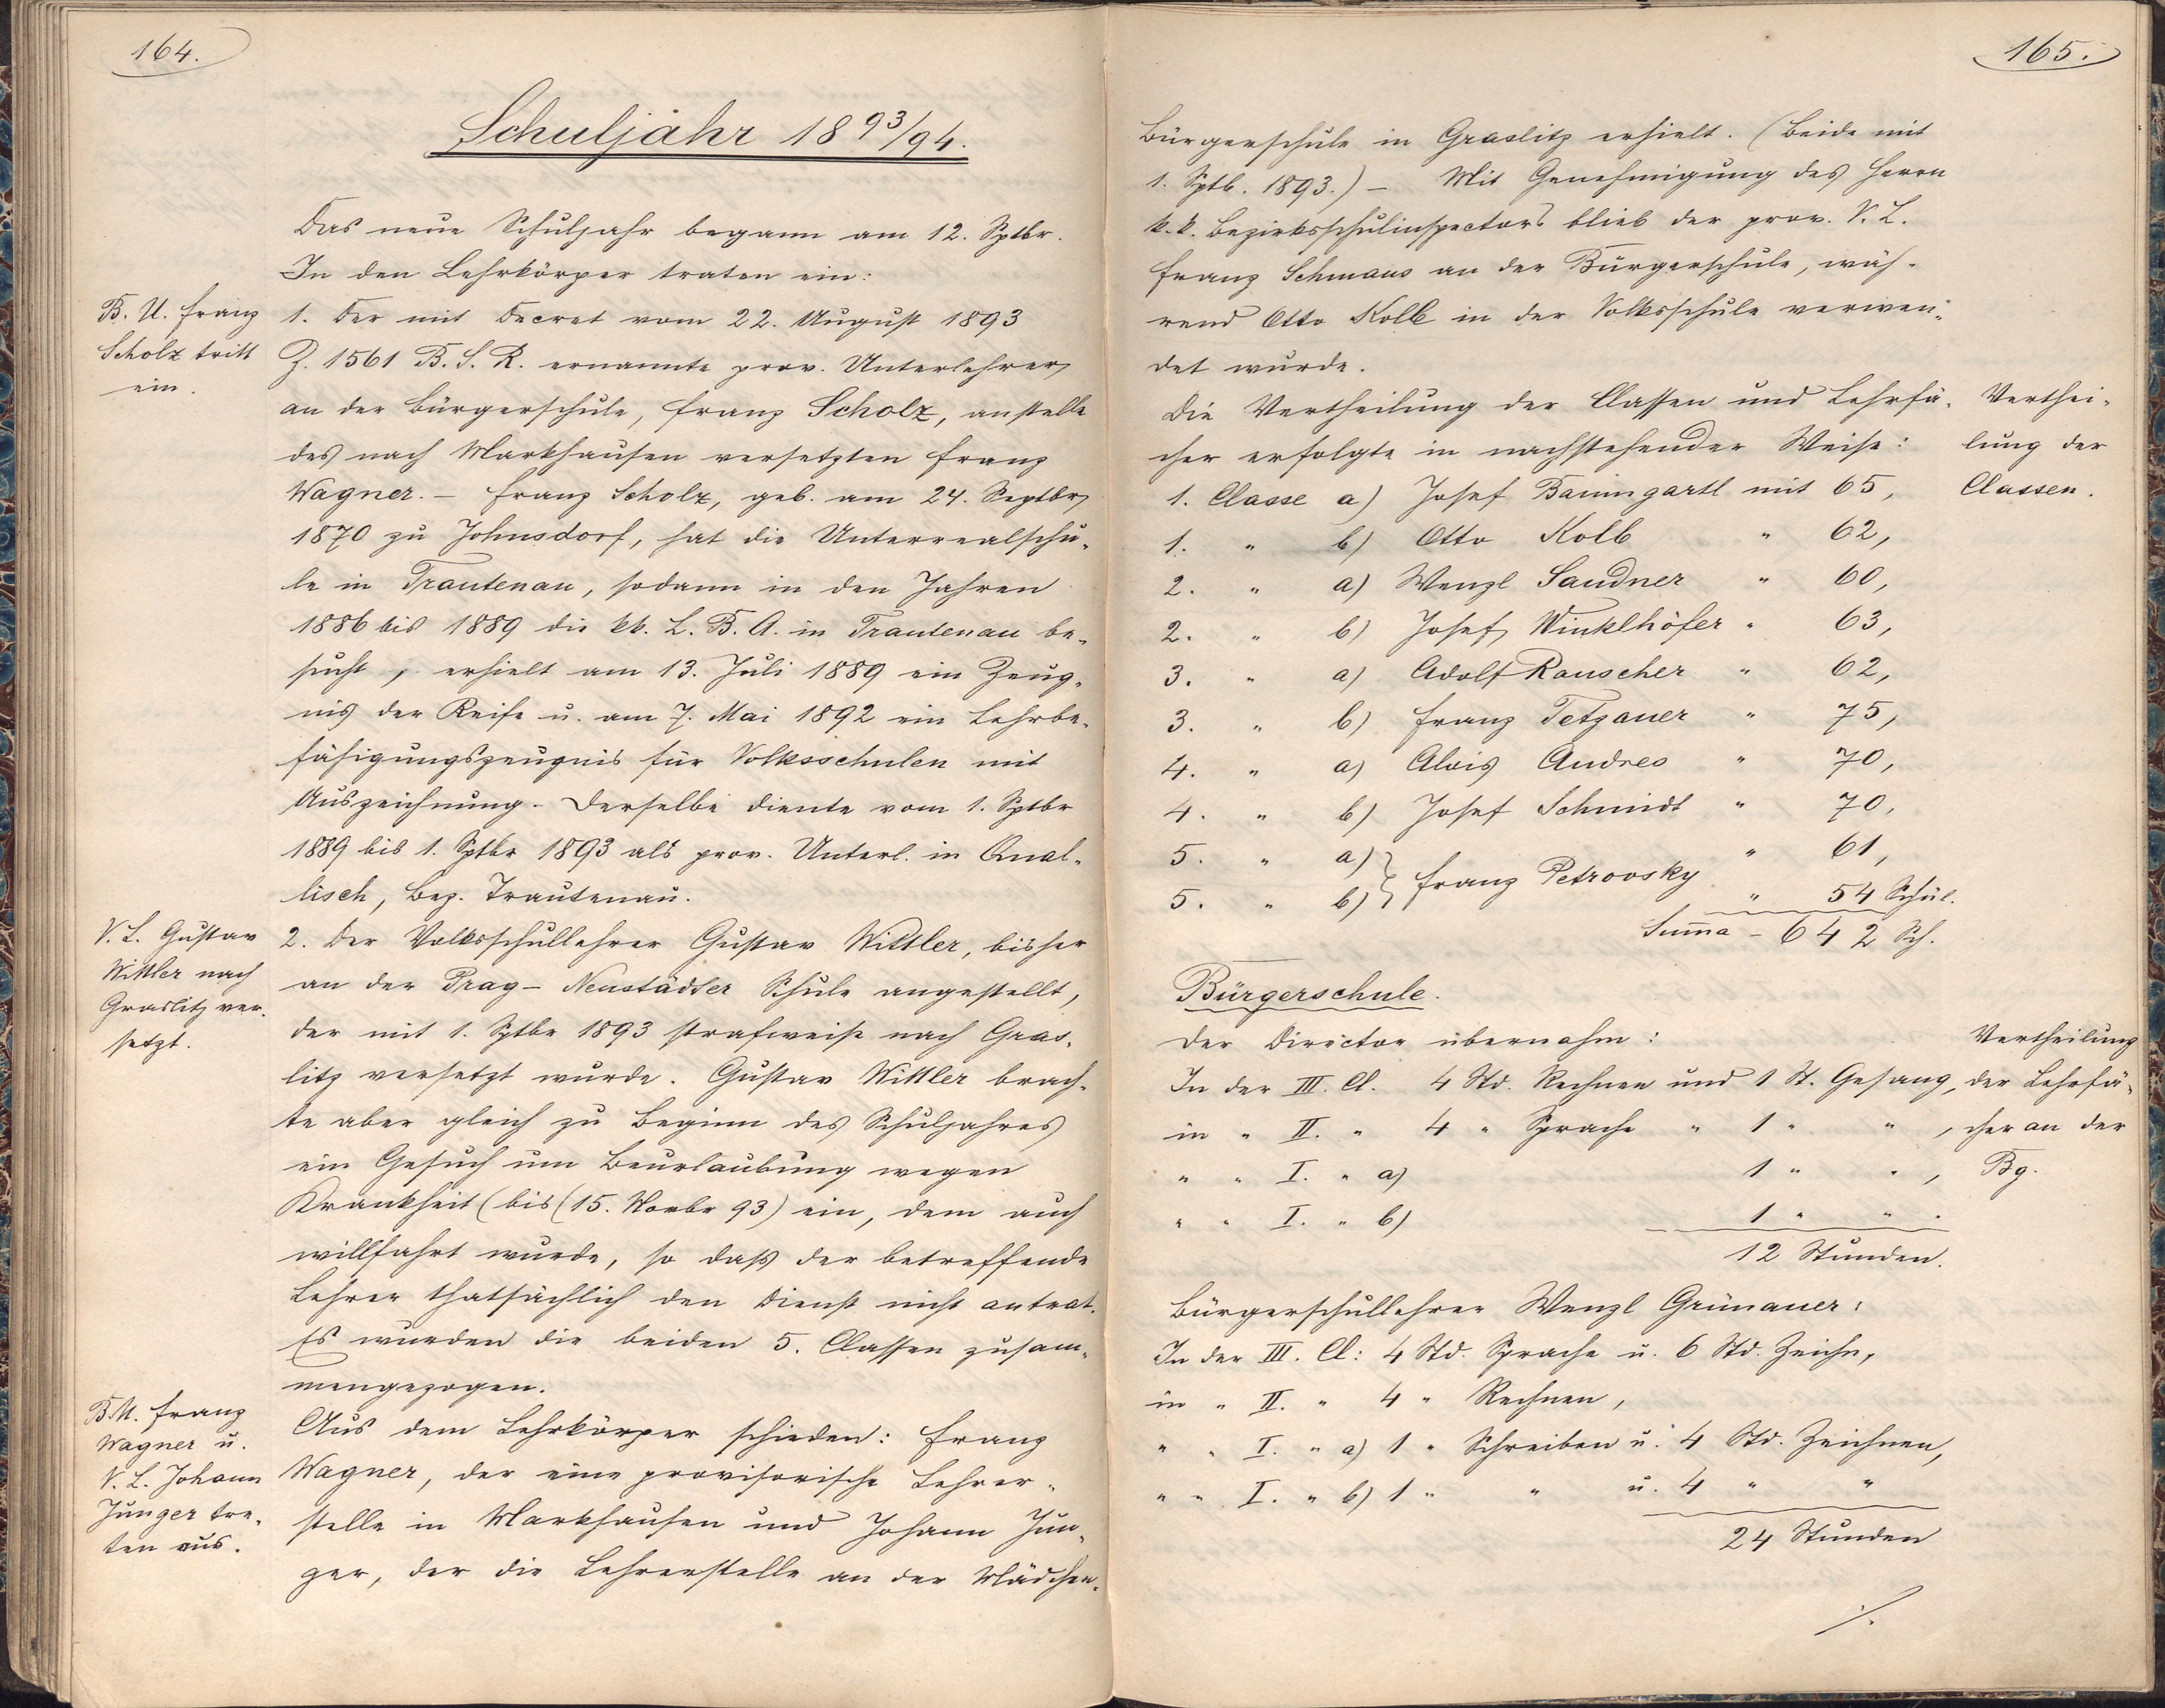 164.
Schuljahr 1893/94.
Das neue Schuljahr begann am 12. Sptbr.
In den Lehrkörper traten ein:
B. U. Franz
Scholz tritt
ein.
1. Der mit Decret vom 22. August 1893
Z. 1561 B. S. R. ernannte prov. Unterlehrer
an der Bürgerschule, Franz Scholz, anstelle
des nach Markhausen versetzten Franz
Wagner. – Franz Scholz, geb. am 24. Septbr
1870 zu Johnsdorf, hat die Unterrealschu-
le in Trautenau, sodann in den Jahren
1886 bis 1889 die kk. L. B. A. in Trautenau be-
sucht, erhielt am 13. Juli 1889 ein Zeug-
nis der Reife u. am 7. Mai 1892 ein Lehrbe-
fähigungszeugnis für Volksschulen mit
Auszeichnung. Derselbe diente vom 1. Sptbr
1889 bis 1. Sptbr 1893 als prov. Unterl. in Qual-
lisch, Bez. Trautenau.
V. L. Gustav
Wittler nach
Graslitz ver-
setzt.
2. Der Volksschullehrer Gustav Wittler, bisher
an der Prag-Neustädter Schule angestellt,
der mit 1. Sptbr 1893 strafweise nach Gras-
litz versetzt wurde. Gustav Wittler brach-
te aber gleich zu Beginn des Schuljahres
ein Gesuch um Beurlaubung wegen
Krankheit (bis (15. Novbr 93) ein, dem auch
willfahrt wurde, so daß der betreffende
Lehrer thatsächlich den Dienst nicht antrat.
Es wurden die beiden 5. Classen zusam-
mengezogen.
B. U. Franz
Wagner u.
V. L. Johann
Junger tre-
ten aus.
Aus dem Lehrkörper schieden: Franz
Wagner, der eine provisorische Lehrer-
stelle in Markhausen und Johann Jun-
ger, der die Lehrerstelle an der Mädchen-
165.
Bürgerschule in Graslitz erhielt. (Beide mit
1. Sptb. 1893.) – Mit Genehmigung des Herrn
k. k. Bezirksschulinspectors blieb der prov. V. L.
Franz Schmaus an der Bürgerschule, wäh-
rend Otto Kolb in der Volksschule verwen-
det wurde.
Die Vertheilung der Classen und Lehrfä-
cher erfolgte in nachstehender Weise:
Verthei-
lung der
Classen.
1. Classe a) Josef Baumgartl mit 65,
1. " b) Otto Kolb " 62,
2. " a) Wenzl Sandner " 60,
2. " b) Josef Winklhöfer " 63,
3. " a) Adolf Rauscher " 62,
3. " b) Franz Tetzauer " 75,
4. " a) Alois Andres " 70,
4. " b) Josef Schmidt " 70,
5. " a) } " 61,
Franz Petrovsky
5. " b) } " 54 Schül.
Summa – 642 Sch.
Bürgerschule.
Der Director übernahm:
Vertheilung
der Lehrfä-
cher an der
Bg.
In der III. Cl. 4 Std. Rechnen und 1 St. Gesang,
in " II. " 4 " Sprache " 1 " " ,
" " I. " a) 1 " " ,
" " I. " b) 1 " " .
12 Stunden.
Bürgerschullehrer Wenzl Grünauer:
In der III. Cl: 4 Std. Sprache u. 6 Std. Zeichn,
in " II. " 4 " Rechnen,
" " I. " a) 1 " Schreiben u. 4 Std. Zeichnen,
" " I. " b) 1 " " u. 4 " "
24 Stunden
./.